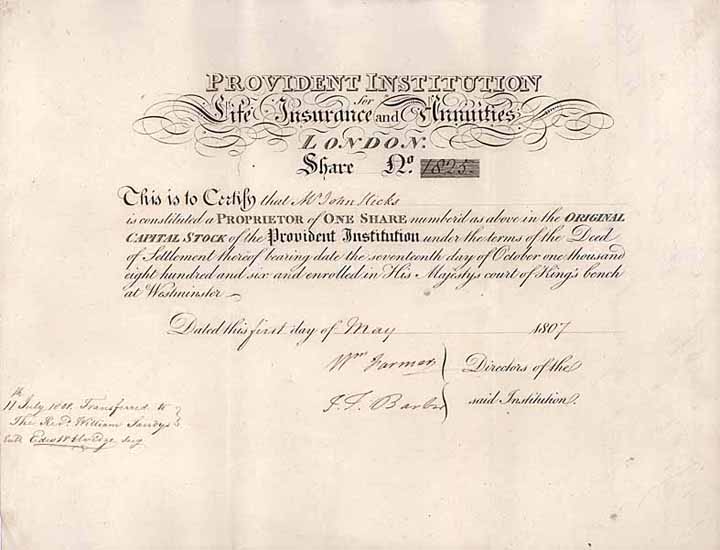 PROVIDENT INSTITUTION
for
Life Insurance and Annuities
LONDON.
Share No. 1825.
This is to Certify that Mr. John Hicks
is constituted a PROPRIETOR of ONE SHARE number'd as above in the ORIGINAL
CAPITAL STOCK of the Provident Institution under the terms of the Deed
of Settlement thereof bearing date the seventeenth day of October one thousand
eight hundred and six and enrolled in His Majesty's court of King's bench
at Westminster
Dated this first day of May 1807
Wm Farmer
Directors of the
J. T. Barber
said Institution.
11th July Transferred to
The Revd. William Sandys